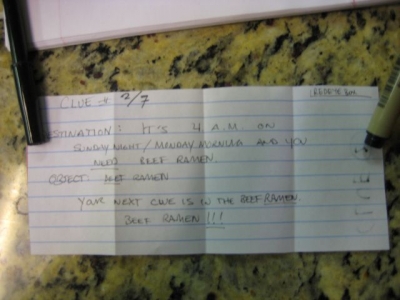 CLUE # 2/7
DESTINATION: IT'S 4 A.M. ON
SUNDAY NIGHT/MONDAY MORNING AND YOU
NEED BEEF RAMEN.
OBJECT: BEEF RAMEN
YOUR NEXT CLUE IS IN THE BEEF RAMEN.
BEEF RAMEN!!!